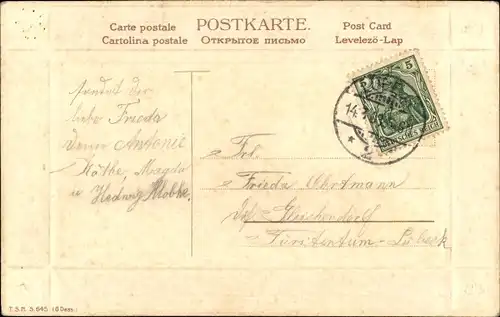 Carte postale
Cartolina postale
POSTKARTE.
ОТКРЫТОЕ ПИСЬМО
Post Card
Levelező-Lap
5
14.
sendet der
liebe Frieda
deine Antonie
Käthe, Magda
u Hedwig Klobke.
Frl.
Frieda Ehrtmann
Gleschendorf
Fürstentum-Lübeck
T.S.N. S.645 (6 Dess.)